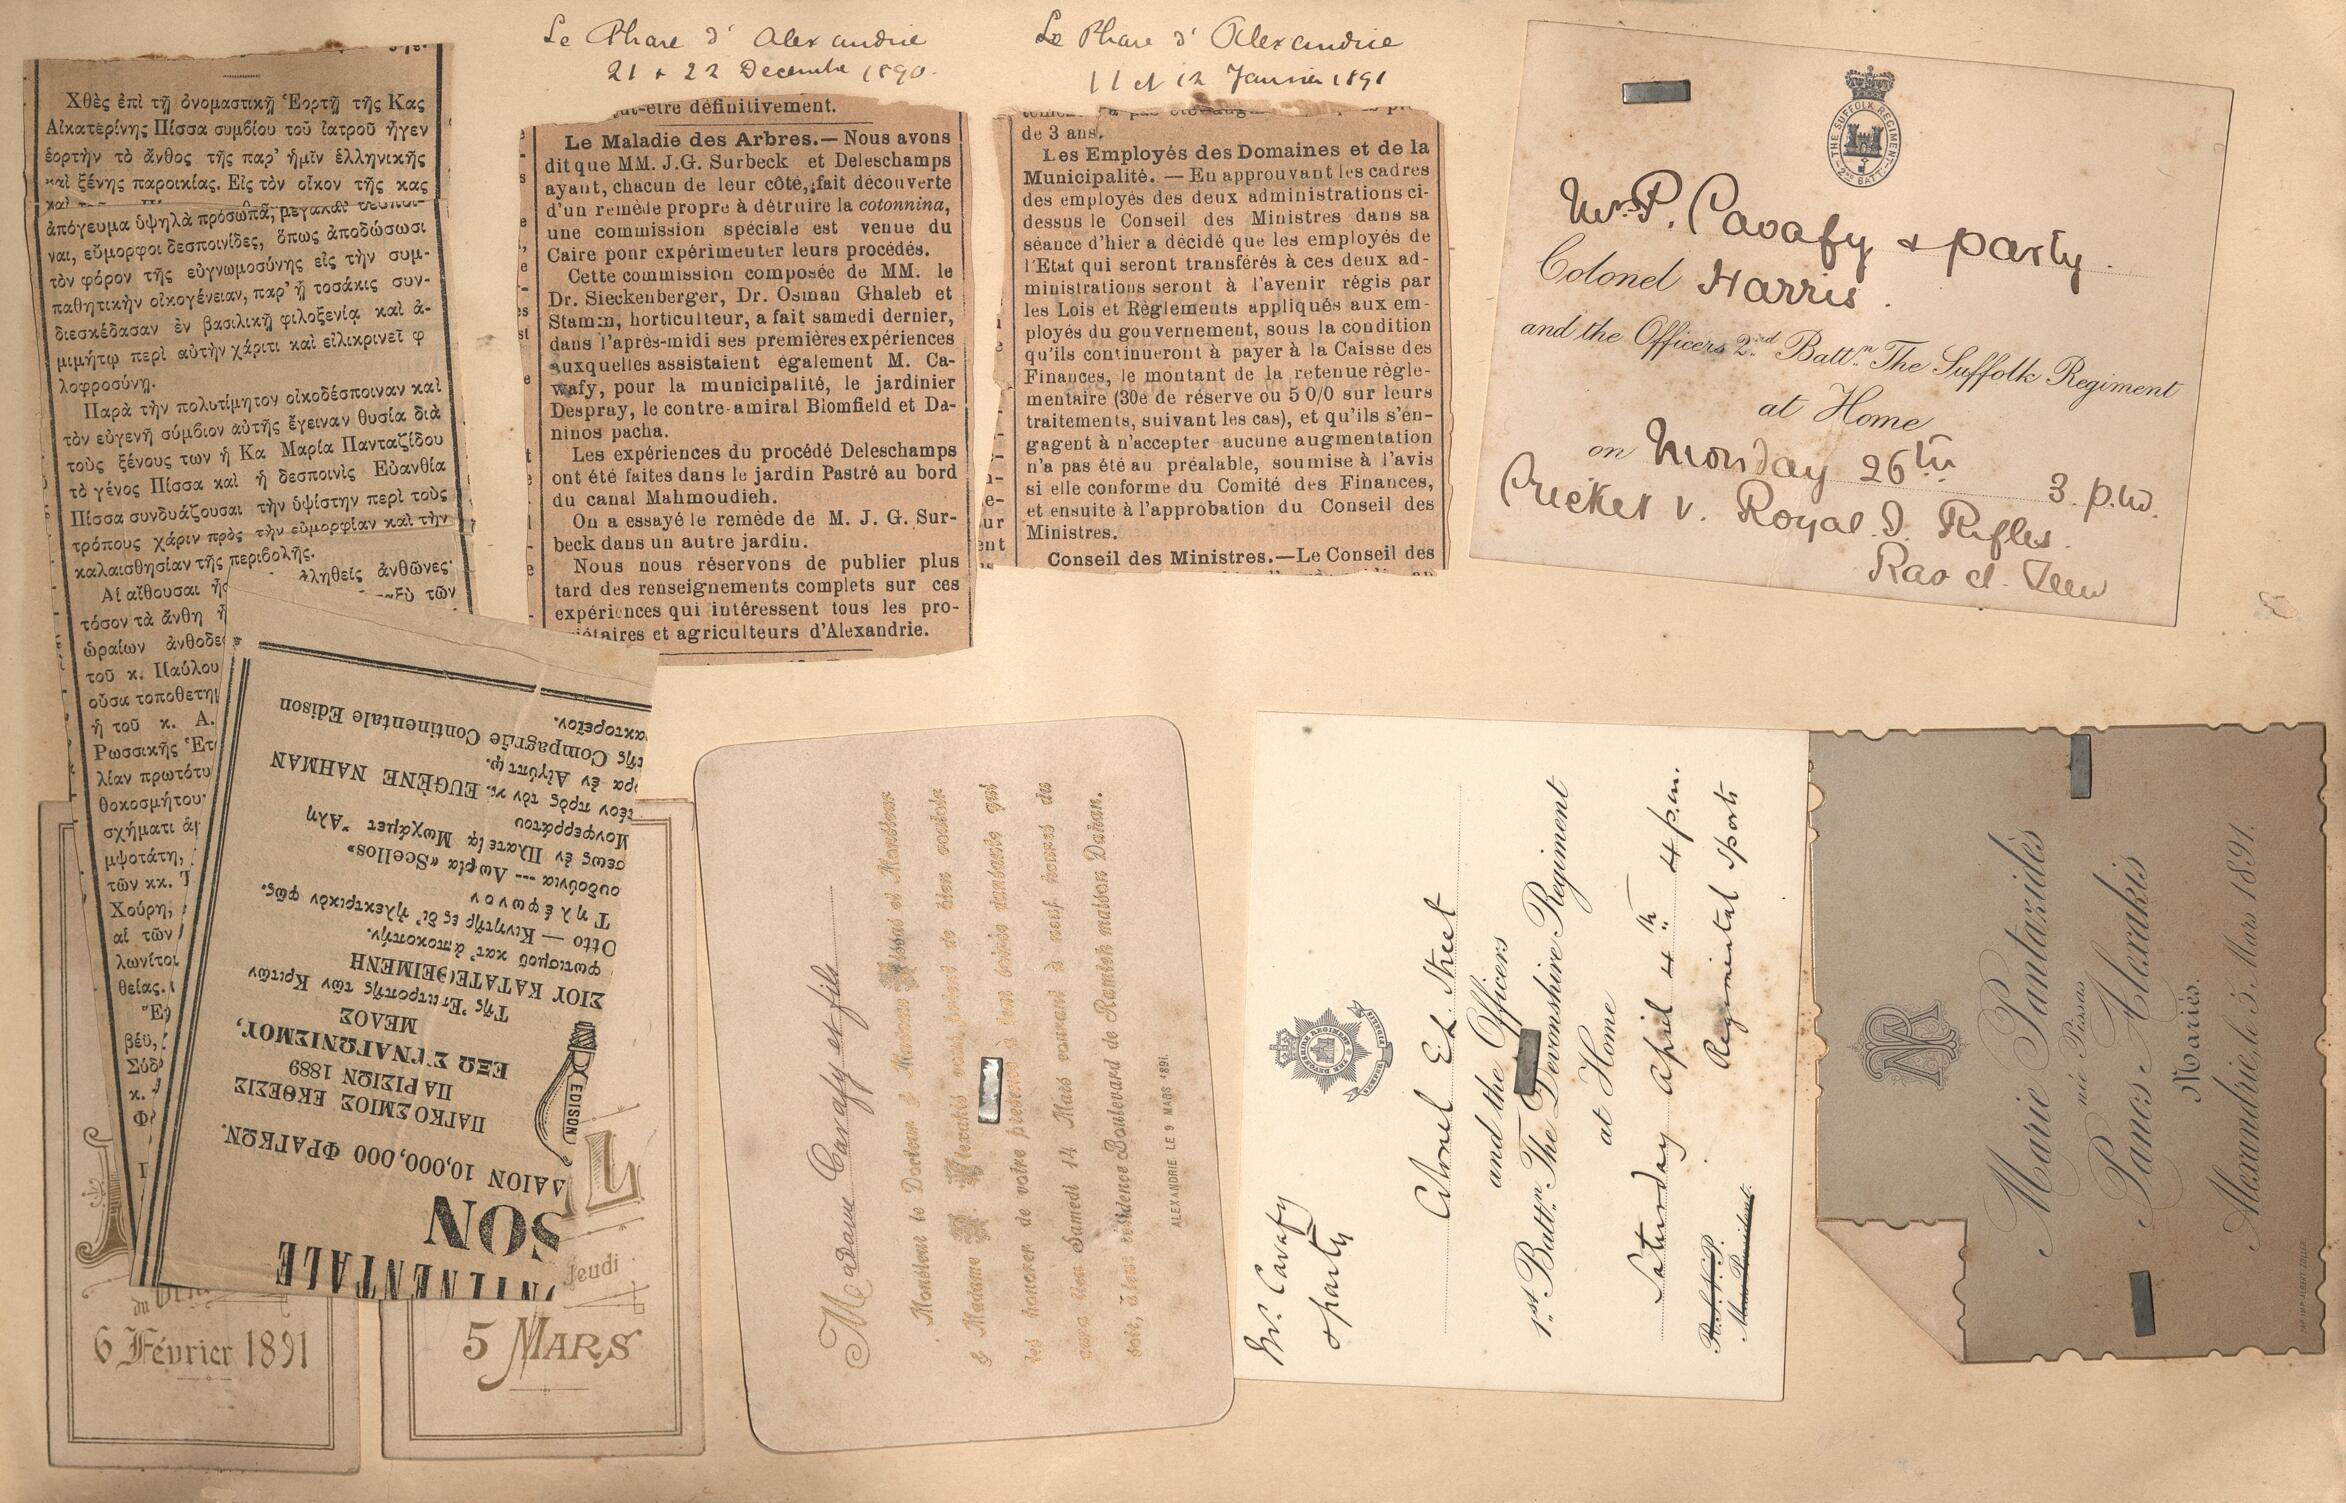 Χθὲς ἐπὶ τῇ ὀνομαστικῇ Ἑορτῇ τῆς Κας
Αἰκατερίνης Πίσσα συμβίου τοῦ ἰατροῦ ἦγεν
ἑορτὴν τὸ ἄνθος τῆς παρ' ἡμῖν ἑλληνικῆς
καὶ ξένης παροικίας. Εἰς τὸν οἶκον τῆς κας
ἀπόγευμα ὑψηλὰ πρόσωπα, μεγάλαι δεσποι-
ναι, εὔμορφοι δεσποινίδες, ὅπως ἀποδώσωσι
τὸν φόρον τῆς εὐγνωμοσύνης εἰς τὴν συμ-
παθητικὴν οἰκογένειαν, παρ' ᾗ τοσάκις συν-
διεσκέδασαν ἐν βασιλικῇ φιλοξενίᾳ καὶ ἀ-
μιμήτῳ περὶ αὐτὴν χάριτι καὶ εἰλικρινεῖ φ
λοφροσύνῃ.
Παρὰ τὴν πολυτίμητον οἰκοδέσποιναν καὶ
τὸν εὐγενῆ σύμβιον αὐτῆς ἔγειναν θυσία διὰ
τοὺς ξένους των ἡ Κα Μαρία Πανταζίδου
τὸ γένος Πίσσα καὶ ἡ δεσποινὶς Εὐανθία
Πίσσα συνδυάζουσαι τὴν ὑψίστην περὶ τοὺς
τρόπους χάριν πρὸς τὴν εὐμορφίαν καὶ τὴν
καλαισθησίαν τῆς περιβολῆς.
Αἱ αἴθουσαι ἧς
κληθεὶς ἀνθῶνες·
τῶν
τόσον τὰ ἄνθη ἦ
ὡραίων ἀνθοδε
τοῦ κ. Παύλου
οὖσα τοποθετη
ἡ τοῦ κ. Α.
Ρωσσικῆς Ἑτ
λίαν πρωτότυ
θοκοσμήτου·
σχήματι
μψοτάτη,
τῶν κκ.
Χούρη,
αἱ τῶν
λωνίτοι
θείας.
βέϋ,
Σύδ
κ.
Le Phare d'Alexandrie
21 & 22 Decembre 1890.
ut-être définitivement.
Le Maladie des Arbres.— Nous avons
dit que MM. J.G. Surbeck et Deleschamps
ayant, chacun de leur côté, fait découverte
d'un remède propre à détruire la cotonnina,
une commission spéciale est venue du
Caire ponr expérimenter leurs procédés.
Cette commission composée de MM. le
Dr. Sieckenberger, Dr. Osman Ghaleb et
Stamm, horticulteur, a fait samedi dernier,
dans l'après-midi ses premières expériences
auxquelles assistaient également M. Ca-
wafy, pour la municipalité, le jardinier
Despray, le contre-amiral Blomfield et Da-
ninos pacha.
Les expériences du procédé Deleschamps
ont été faites dans le jardin Pastré au bord
du canal Mahmoudieh.
On a essayé le remède de M. J. G. Sur-
beck dans un autre jardin.
Nous nous réservons de publier plus
tard des renseignements complets sur ces
expériences qui intéressent tous les pro-
priétaires et agriculteurs d'Alexandrie.
Le Phare d'Alexandrie
11 et 12 Janvier 1891
de 3 ans.
Les Employés des Domaines et de la
Municipalité. — En approuvant les cadres
des employés des deux administrations ci-
dessus le Conseil des Ministres dans sa
séance d'hier a décidé que les employés de
l'Etat qui seront transférés à ces deux ad-
ministrations seront à l'avenir régis par
les Lois et Règlements appliqués aux em-
ployés du gouvernement, sous la condition
qu'ils continueront à payer à la Caisse des
Finances, le montant de la retenue règle-
mentaire (30e de réserve ou 5 0/0 sur leurs
traitements, suivant les cas), et qu'ils s'en-
gagent à n'accepter aucune augmentation
n'a pas été au préalable, soumise à l'avis
si elle conforme du Comité des Finances,
et ensuite à l'approbation du Conseil des
Ministres.
Conseil des Ministres.—Le Conseil des
THE SUFFOLK REGIMENT
2ND BATT.
Mr. P. Cavafy & party.
Colonel Harris.
and the Officers 2nd Battn. The Suffolk Regiment
at Home
on Monday 26th 3 p.m.
Cricket v. Royal I. Rifles.
Ras el-Teen
ΝΤΙΝΕΝΤΑLE
SON
ΛΑΙΟΝ 10,000,000 ΦΡΑΓΚΩΝ.
EDISON
ΠΑΓΚΟΣΜΙΟΣ ΕΚΘΕΣΙΣ
ΠΑΡΙΣΙΩΝ 1889
ΕΞΩ ΣΥΝΑΓΩΝΙΣΜΟΥ,
ΜΕΛΟΣ
Τῆς Ἐπιτροπῆς τῶν Κριτῶν
ΣΙΟΥ ΚΑΤΑΤΕΘΕΙΜΕΝΗ
φωτισμοῦ κατ' ἀποκοπήν.
Otto — Κινητῆρες δι' ἠλεκτρικὸν φῶς.
Τηλέφωνον
ουδούνια --- Λωρία «Scellos»
σεως ἐν Πλατείᾳ Μωχάμετ Ἄλη
Μονφερράτου
τέον πρὸς τὸν κ. EUGÈNE NAHMAN
ρα ἐν Αἰγύπτῳ.
τῆς Compagnie Continentale Edison
ακτορεῖον.
du
6 Février 1891
Jeudi
5 MARS
Madame Cavafy et fils
Monsieur le Docteur & Madame Pissas et Monsieur
& Madame P. Alexakis vous prient de bien vouloir
les honorer de votre présence à leur soirée dansante qui
aura lieu Samedi 14 Mars courant à neuf heures du
soir, à leur résidence Boulevard de Ramleh maison Dahan.
ALEXANDRIE LE 9 MARS 1891.
Mr. Cavafy
& party
THE DEVONSHIRE REGIMENT
SEMPER FIDELIS
Colonel E.H. Street
and the Officers
1st Battn. The Devonshire Regiment
at Home
Saturday April 4th 4 p.m.
R.S.V.P.
Mess President.
Regimental Sports
Marie Pantazidès
née Pissas
Panos Alexakis
Mariés.
Alexandrie, le 5 Mars 1891.